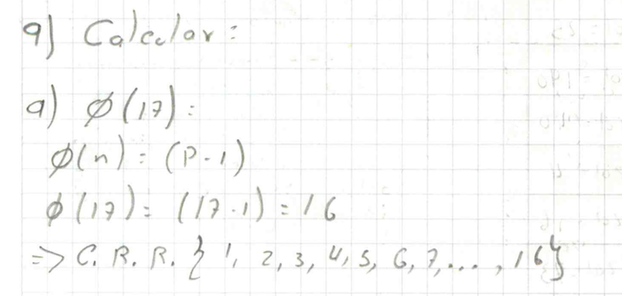 9) Calcular:
a) ϕ(17):
ϕ(n) = (P-1)
ϕ(17) = (17-1) = 16
=> C. R. R. { 1, 2, 3, 4, 5, 6, 7, ..., 16}